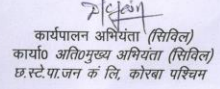 कार्यपालन अभियंता (सिविल)
कार्या० अति०मुख्य अभियंता (सिविल)
छ.स्टे.पा.जन कं लि, कोरबा पश्चिम